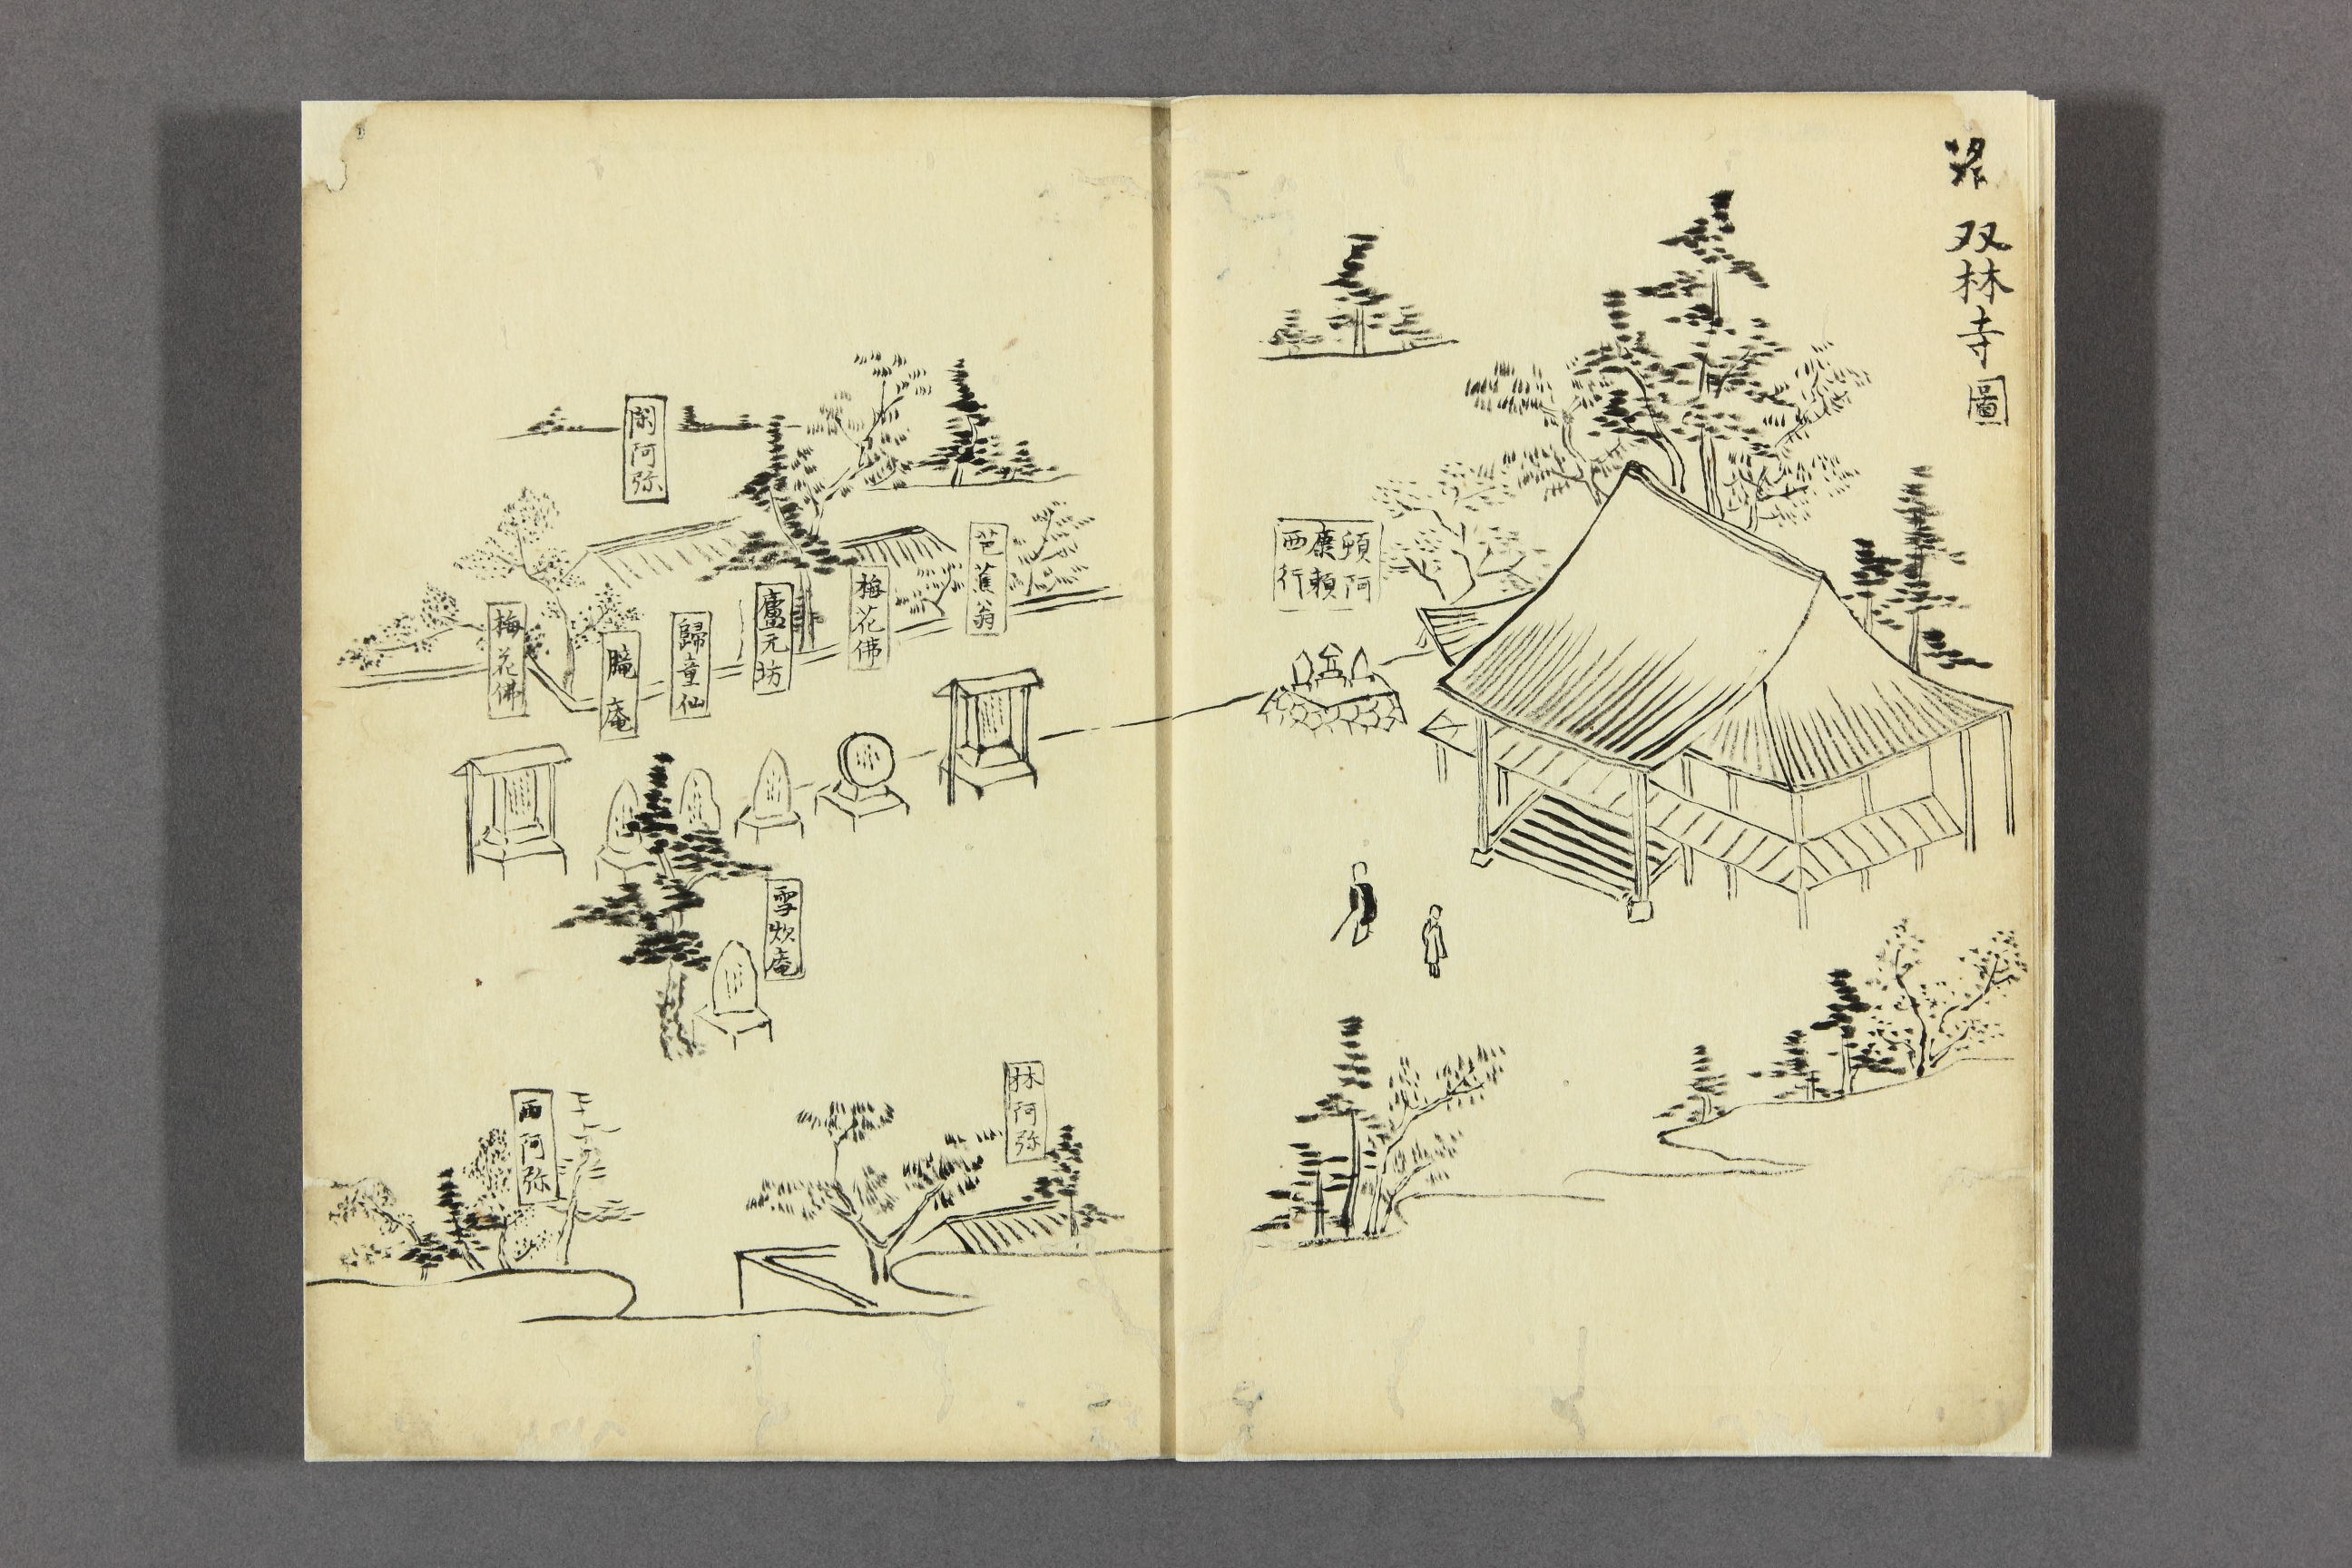 双林寺圖
頓阿
康頼
西行
芭蕉翁
梅花佛
廬元坊
歸童仙
庵
梅花佛
閑阿弥
雪炊庵
林阿弥
西阿弥